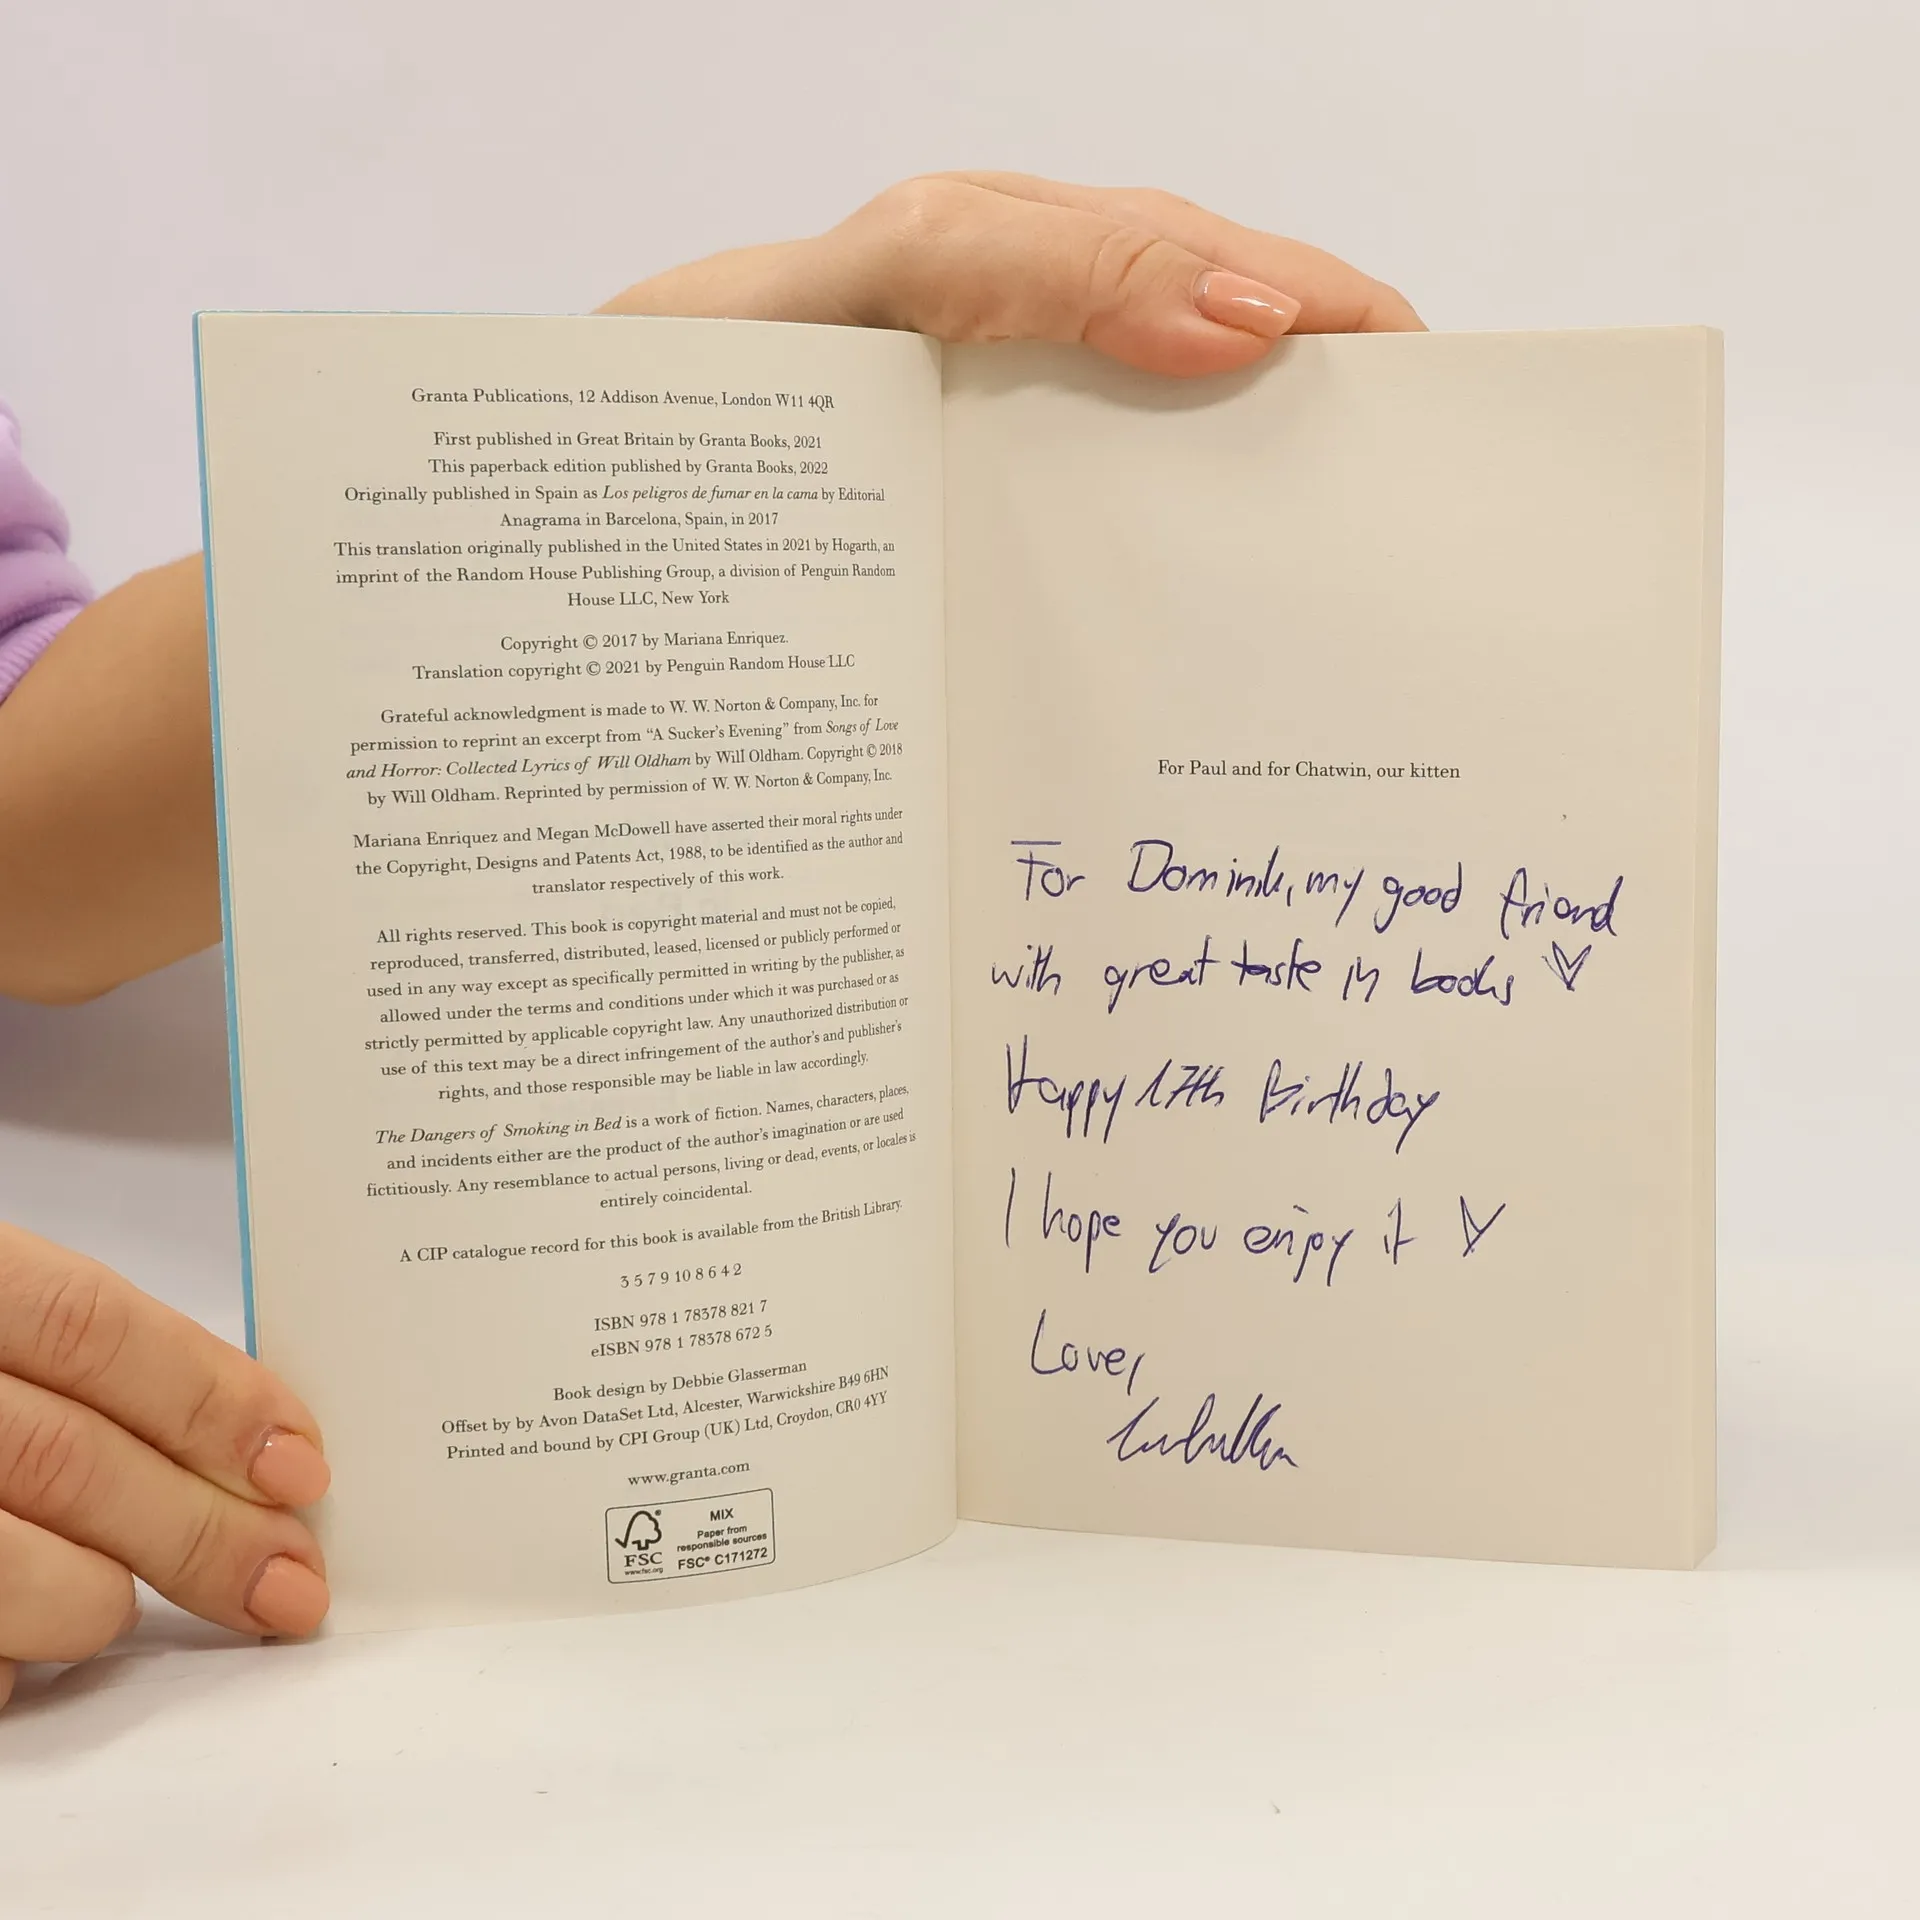 Granta Publications, 12 Addison Avenue, London W11 4QR
First published in Great Britain by Granta Books, 2021
This paperback edition published by Granta Books, 2022
Originally published in Spain as Los peligros de fumar en la cama by Editorial
Anagrama in Barcelona, Spain, in 2017
This translation originally published in the United States in 2021 by Hogarth, an
imprint of the Random House Publishing Group, a division of Penguin Random
House LLC, New York
Copyright © 2017 by Mariana Enriquez.
Translation copyright © 2021 by Penguin Random House LLC
Grateful acknowledgment is made to W. W. Norton & Company, Inc. for
permission to reprint an excerpt from “A Sucker’s Evening” from Songs of Love
and Horror: Collected Lyrics of Will Oldham by Will Oldham. Copyright © 2018
by Will Oldham. Reprinted by permission of W. W. Norton & Company, Inc.
Mariana Enriquez and Megan McDowell have asserted their moral rights under
the Copyright, Designs and Patents Act, 1988, to be identified as the author and
translator respectively of this work.
All rights reserved. This book is copyright material and must not be copied,
reproduced, transferred, distributed, leased, licensed or publicly performed or
used in any way except as specifically permitted in writing by the publisher, as
allowed under the terms and conditions under which it was purchased or as
strictly permitted by applicable copyright law. Any unauthorized distribution or
use of this text may be a direct infringement of the author’s and publisher’s
rights, and those responsible may be liable in law accordingly.
The Dangers of Smoking in Bed is a work of fiction. Names, characters, places,
and incidents either are the product of the author’s imagination or are used
fictitiously. Any resemblance to actual persons, living or dead, events, or locales is
entirely coincidental.
A CIP catalogue record for this book is available from the British Library.
3 5 7 9 10 8 6 4 2
ISBN 978 1 78378 821 7
eISBN 978 1 78378 672 5
Book design by Debbie Glasserman
Offset by by Avon DataSet Ltd, Alcester, Warwickshire B49 6HN
Printed and bound by CPI Group (UK) Ltd, Croydon, CR0 4YY
www.granta.com
FSC®
www.fsc.org
MIX
Paper from
responsible sources
FSC® C171272
For Paul and for Chatwin, our kitten
For Dominik, my good friend
with great taste in books ♡
Happy 17th Birthday
I hope you enjoy it ♡
Love,